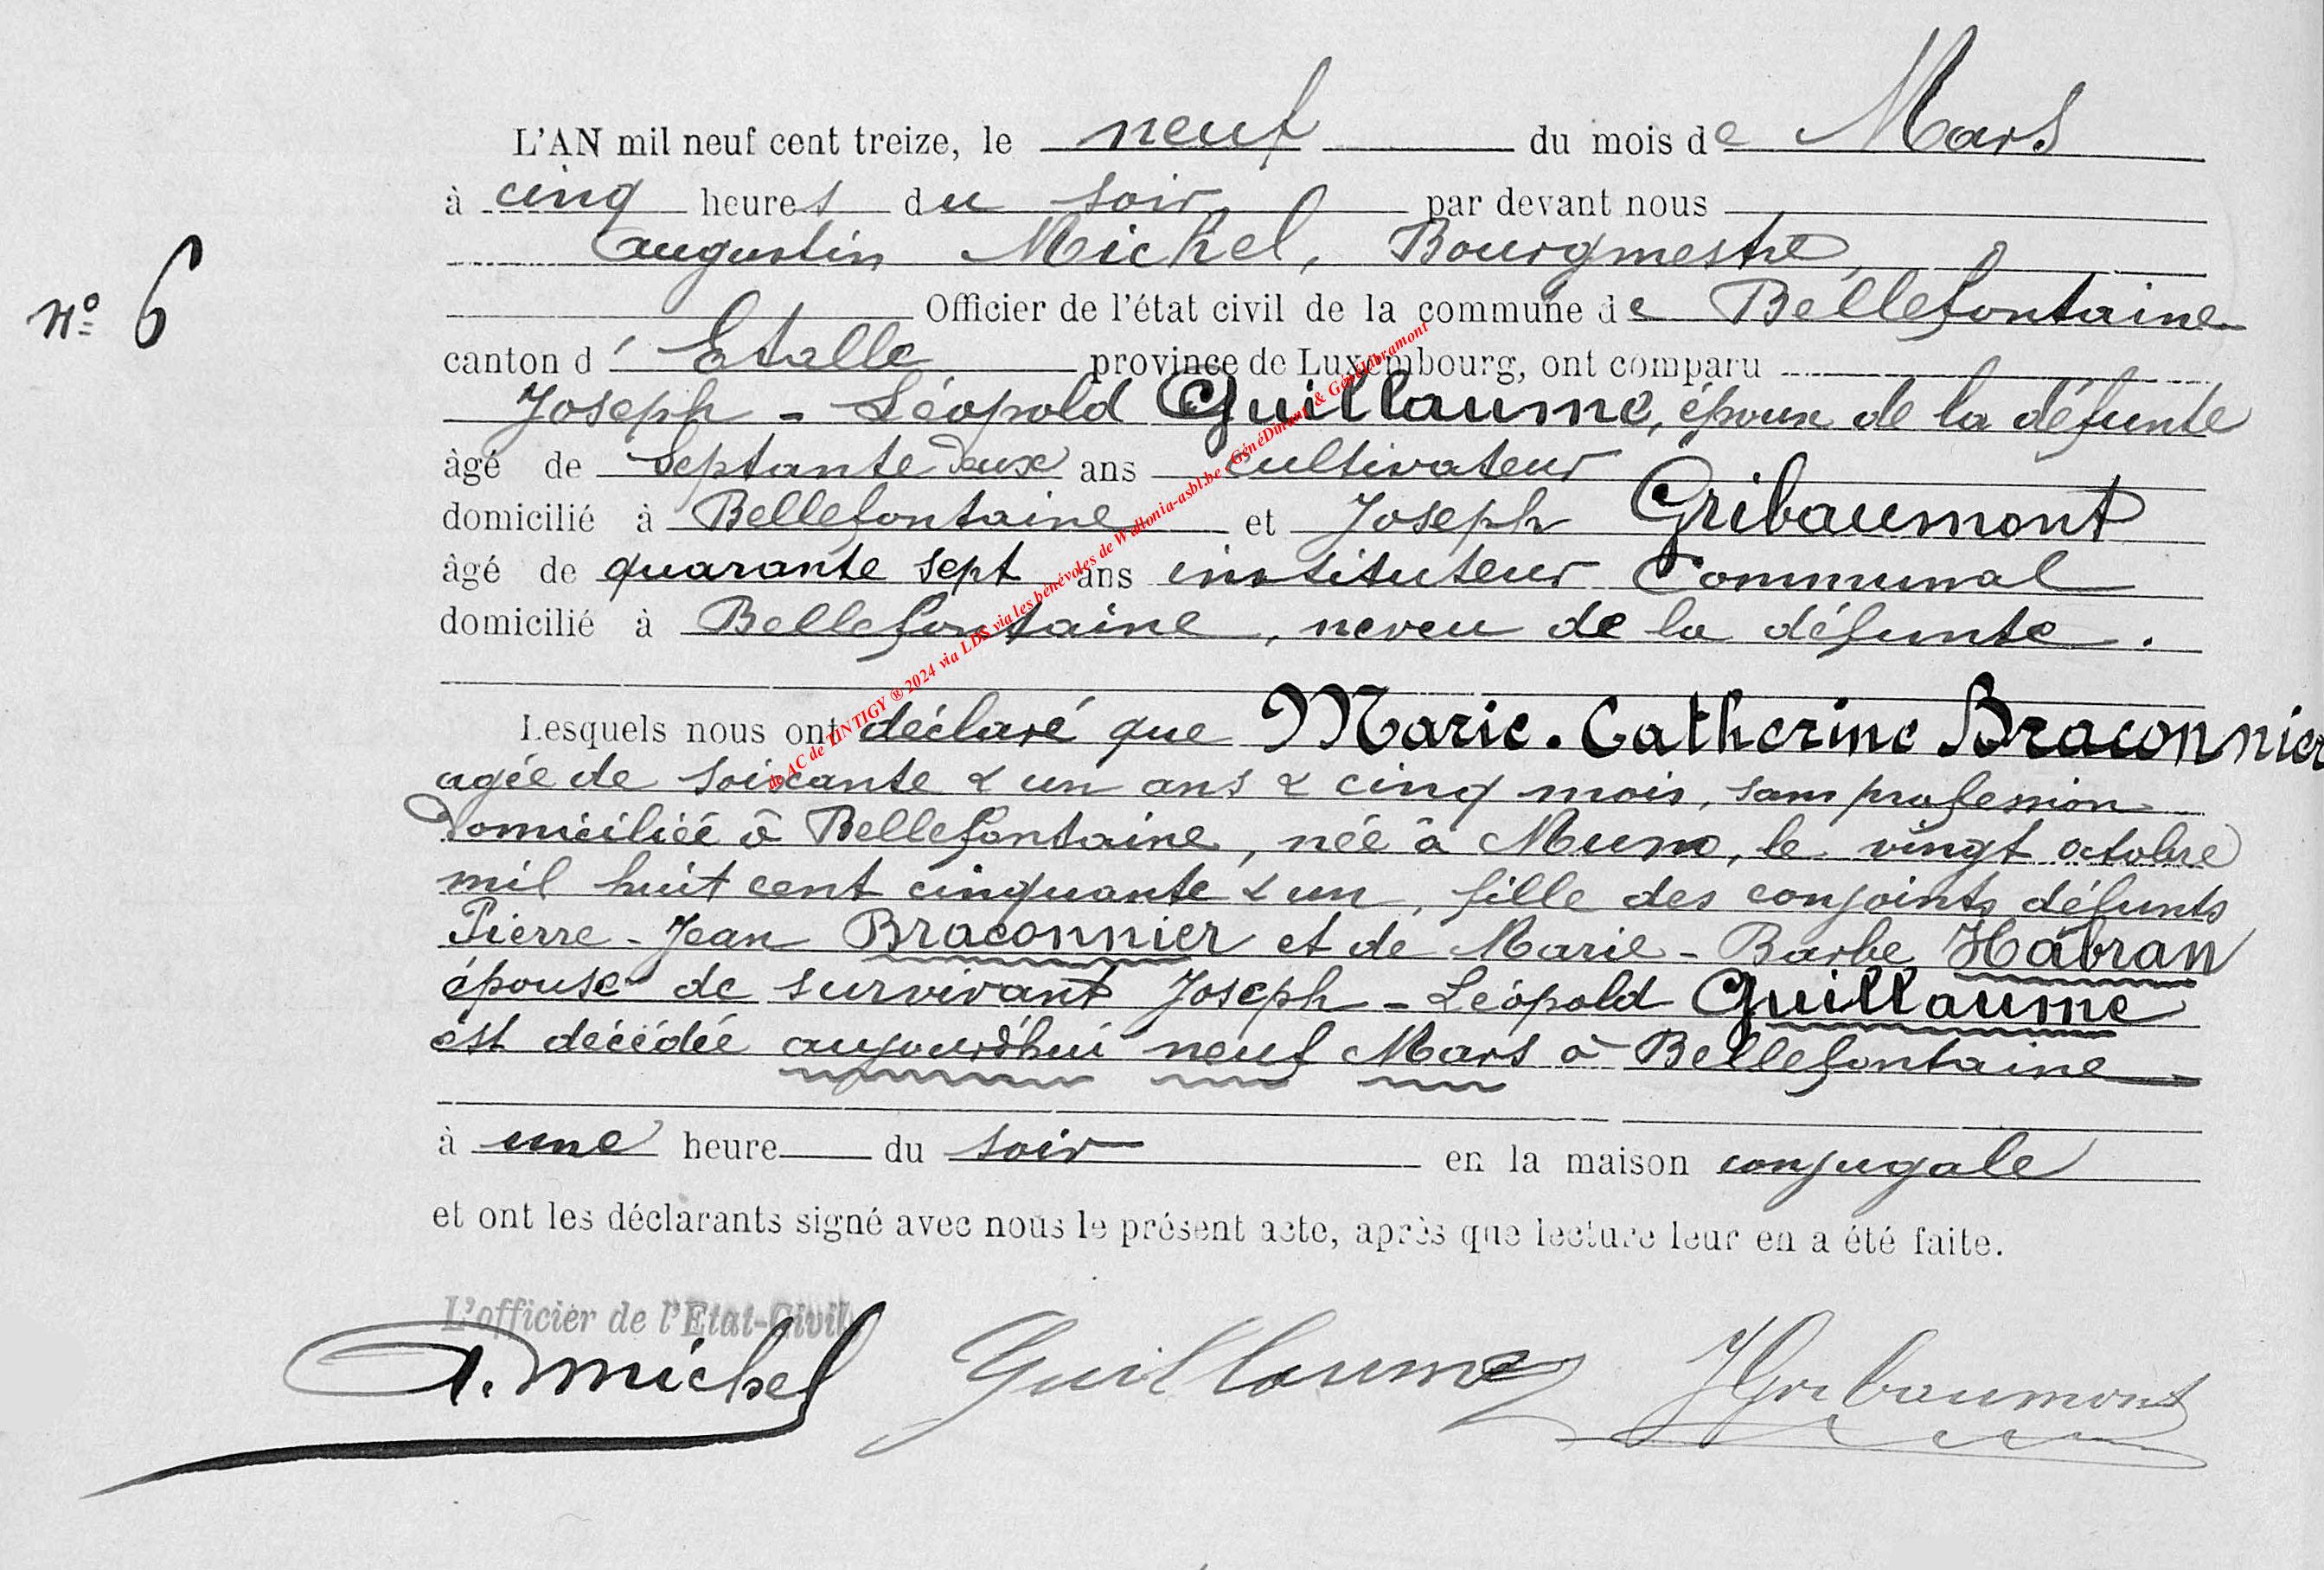 L'AN mil neuf cent treize, le neuf du mois de Mars
à cinq heures du soir par devant nous
Augustin Michel, Bourgmestre,
nº 6
Officier de l'état civil de la commune de Bellefontaine
canton d'Etalle province de Luxembourg, ont comparu
Joseph - Léopold Guillaume, époux de la défunte
âgé de septante deux ans cultivateur
domicilié à Bellefontaine et Joseph Gribaumont
âgé de quarante sept ans instituteur Communal
domicilié à Bellefontaine, neveu de la défunte.
Lesquels nous ont déclaré que Marie-Catherine Braconnier
agée de soixante & un ans & cinq mois, sans profession
Domiciliée à Bellefontaine, née à Muno, le vingt octobre
mil huit cent cinquante & un, fille des conjoints défunts
Pierre-Jean Braconnier et de Marie-Barbe Habran
épouse de survivant Joseph-Léopold Guillaume
est décédée aujourd'hui neuf Mars à Bellefontaine
à une heure du soir en la maison conjugale
et ont les déclarants signé avec nous le présent acte, après que lecture leur en a été faite.
L'officier de l'Etat-Civil
A. Michel Guillaume JGribaumont
de AC de TINTIGY ® 2024 via LDS via les bénévoles de Wallonia-asbl.be, GénéDinant & GénéLibramont